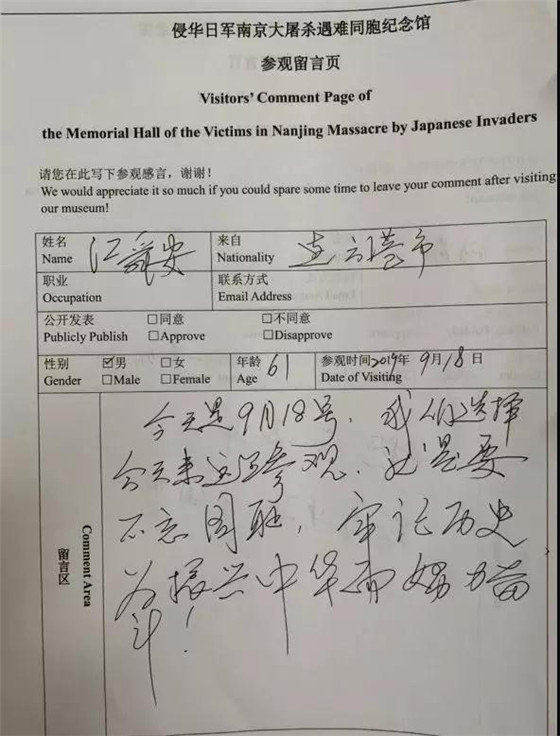 侵华日军南京大屠杀遇难同胞纪念馆
参观留言页
Visitors' Comment Page of
the Memorial Hall of the Victims in Nanjing Massacre by Japanese Invaders
请您在此写下参观感言，谢谢！
We would appreciate it so much if you could spare some time to leave your comment after visiting
our museum!
姓名 来自
Name 江 安 Nationality 连云港市
职业 联系方式
Occupation Email Address
公开发表 □同意 □不同意
Publicly Publish □Approve □Disapprove
性别 ☑男 □女 年龄 61 参观时间2019年 9月18日
Gender □Male □Female Age Date of Visiting
留言区 Comment Area
今天是9月18号，我们选择
今天来这里参观，就是要
不忘国耻，牢记历史
为振兴中华而努力奋
斗！